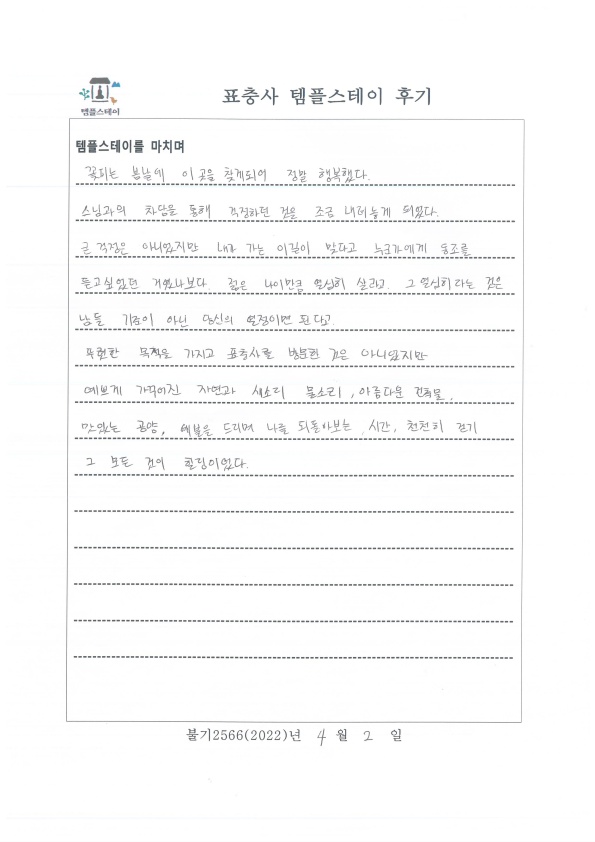 템플스테이
표충사 템플스테이 후기
템플스테이를 마치며
꽃피는 봄날에 이 곳을 찾게되어 정말 행복했다.
스님과의 차담을 통해 걱정하던 것을 조금 내려놓게 되었다.
큰 걱정은 아니었지만 내가 가는 이길이 맞다고 누군가에게 동조를
듣고싶었던 거였나보다 젊은 나이만큼 열심히 살라고. 그 열심히라는 것은
남들 기준이 아닌 당신의 열정이면 된다고.
뚜렷한 목적을 가지고 표충사를 방문한 것은 아니었지만
예쁘게 가꾸어진 자연과 새소리 물소리, 아름다운 건축물,
맛있는 공양, 예불을 드리며 나를 되돌아보는 시간, 천천히 걷기
그 모든 것이 힐링이었다.
불기2566(2022)년 4 월 2 일